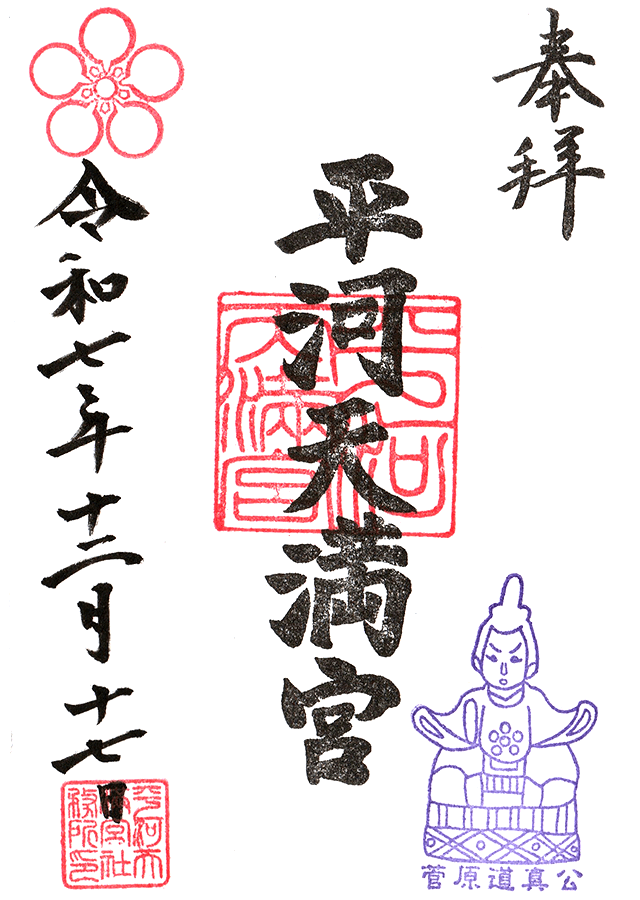 奉拝
平河天満宮
平河天満宮
令和七年十二月十七日
平河天満宮社務所印
菅原道真公